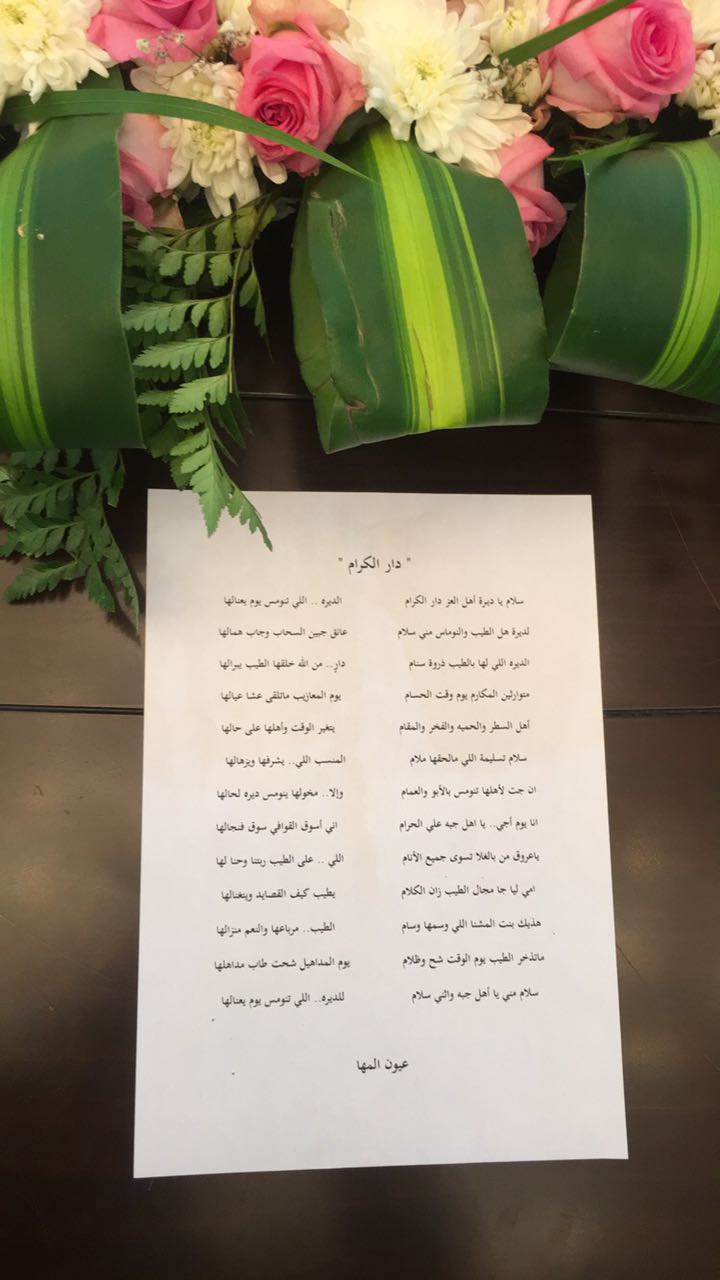 " دار الكرام "
سلام يا ديرة أهل العز دار الكرام الديره .. اللي تنومس يوم يعنالها
لديرة هل الطيب والنوماس مني سلام عانق جبين السحاب وجاب همالها
الديره اللي لها بالطيب ذروة سنام دارٍ.. من الله خلقها الطيب يبرالها
متوارثين المكارم يوم وقت الحسام يوم المعازيب ماتلقى عشا عيالها
أهل السطر والحميه والفخر والمقام يتغير الوقت وأهلها على حالها
سلام تسليمة اللي مالحقها ملام المنسب اللي.. يشرفها ويزهالها
ان جت لأهلها تنومس بالأبو والعمام وإلا.. مخولها ينومس ديره لحالها
انا يوم أجي.. يا اهل جبه علي الحرام اني أسوق القوافي سوق فنجالها
ياعروق من بالغلا تسوى جميع الأنام اللي .. على الطيب ربتنا وحنا لها
امي ليا جا مجال الطيب زان الكلام يطيب كيف القصايد ويتغنالها
هذيك بنت المشنا اللي وسمها وسام الطيب.. مرباعها والنعم منزالها
ماتذخر الطيب يوم الوقت شح وظلام يوم المداهيل شحت طاب مداهلها
سلام مني يا أهل جبه واثني سلام للديره.. اللي تنومس يوم يعنالها
عيون المها